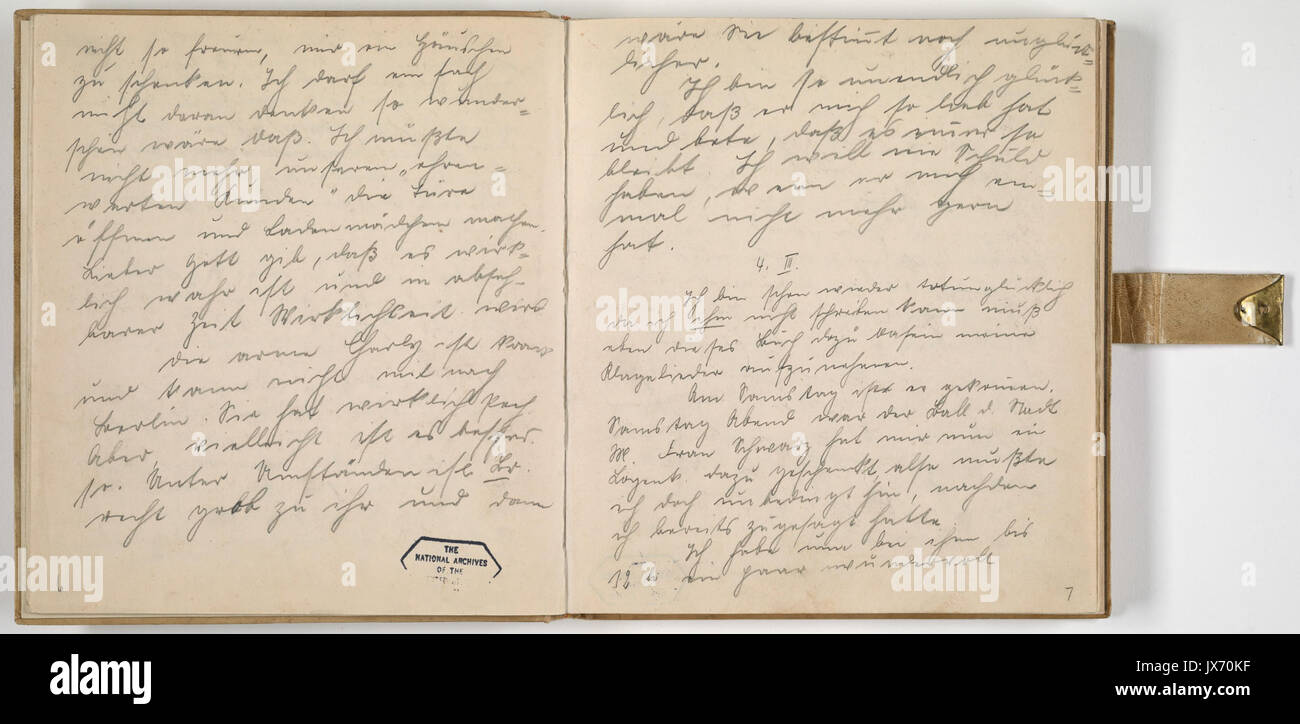 nicht so freuen, mir ein Häuschen
zu schenken. Ich darf einfach
nicht daran denken so wunder-
schön wäre daß. Ich müßte
nicht mehr unseren „ehren-
werten Kunden“ die Türe
öffnen und Ladenmädchen machen.
Lieber Gott gib, daß es wirk-
lich wahr ist und in abseh-
barer Zeit Wirklichkeit wird
Die arme Charly ist krank
und kann nicht mit nach
Berlin. Sie hat wirklich Pech
Aber vielleicht ist es besser
so. Unter Umständen ist Br.
recht grob zu ihr und dann
THE
NATIONAL ARCHIVES
OF THE
6
wäre sie bestimmt noch unglück-
licher.
Ich bin so unendlich glück-
lich, daß er mich so lieb hat
und bete, daß es immer so
bleibt. Ich will nie Schuld
haben, wenn er mich ein-
mal nicht mehr gern
hat.
4. III.
Ich bin schon wieder totunglücklich
da ich ihm nicht schreiben kann muß
eben dieses Buch dazu da sein meine
Klagelieder aufzunehmen.
Am Samstag ist er gekommen.
Samstag Abend war der Ball d. Stadt
M. Frau Schwarz hat mir nun ein
Logenk. dazu geschenkt also mußte
ich doch unbedingt hin, nachdem
ich bereits zugesagt hatte
Ich habe nun bei ihm bis
12 ein paar wundervoll
7
alamy
www.alamy.com
JX70KF